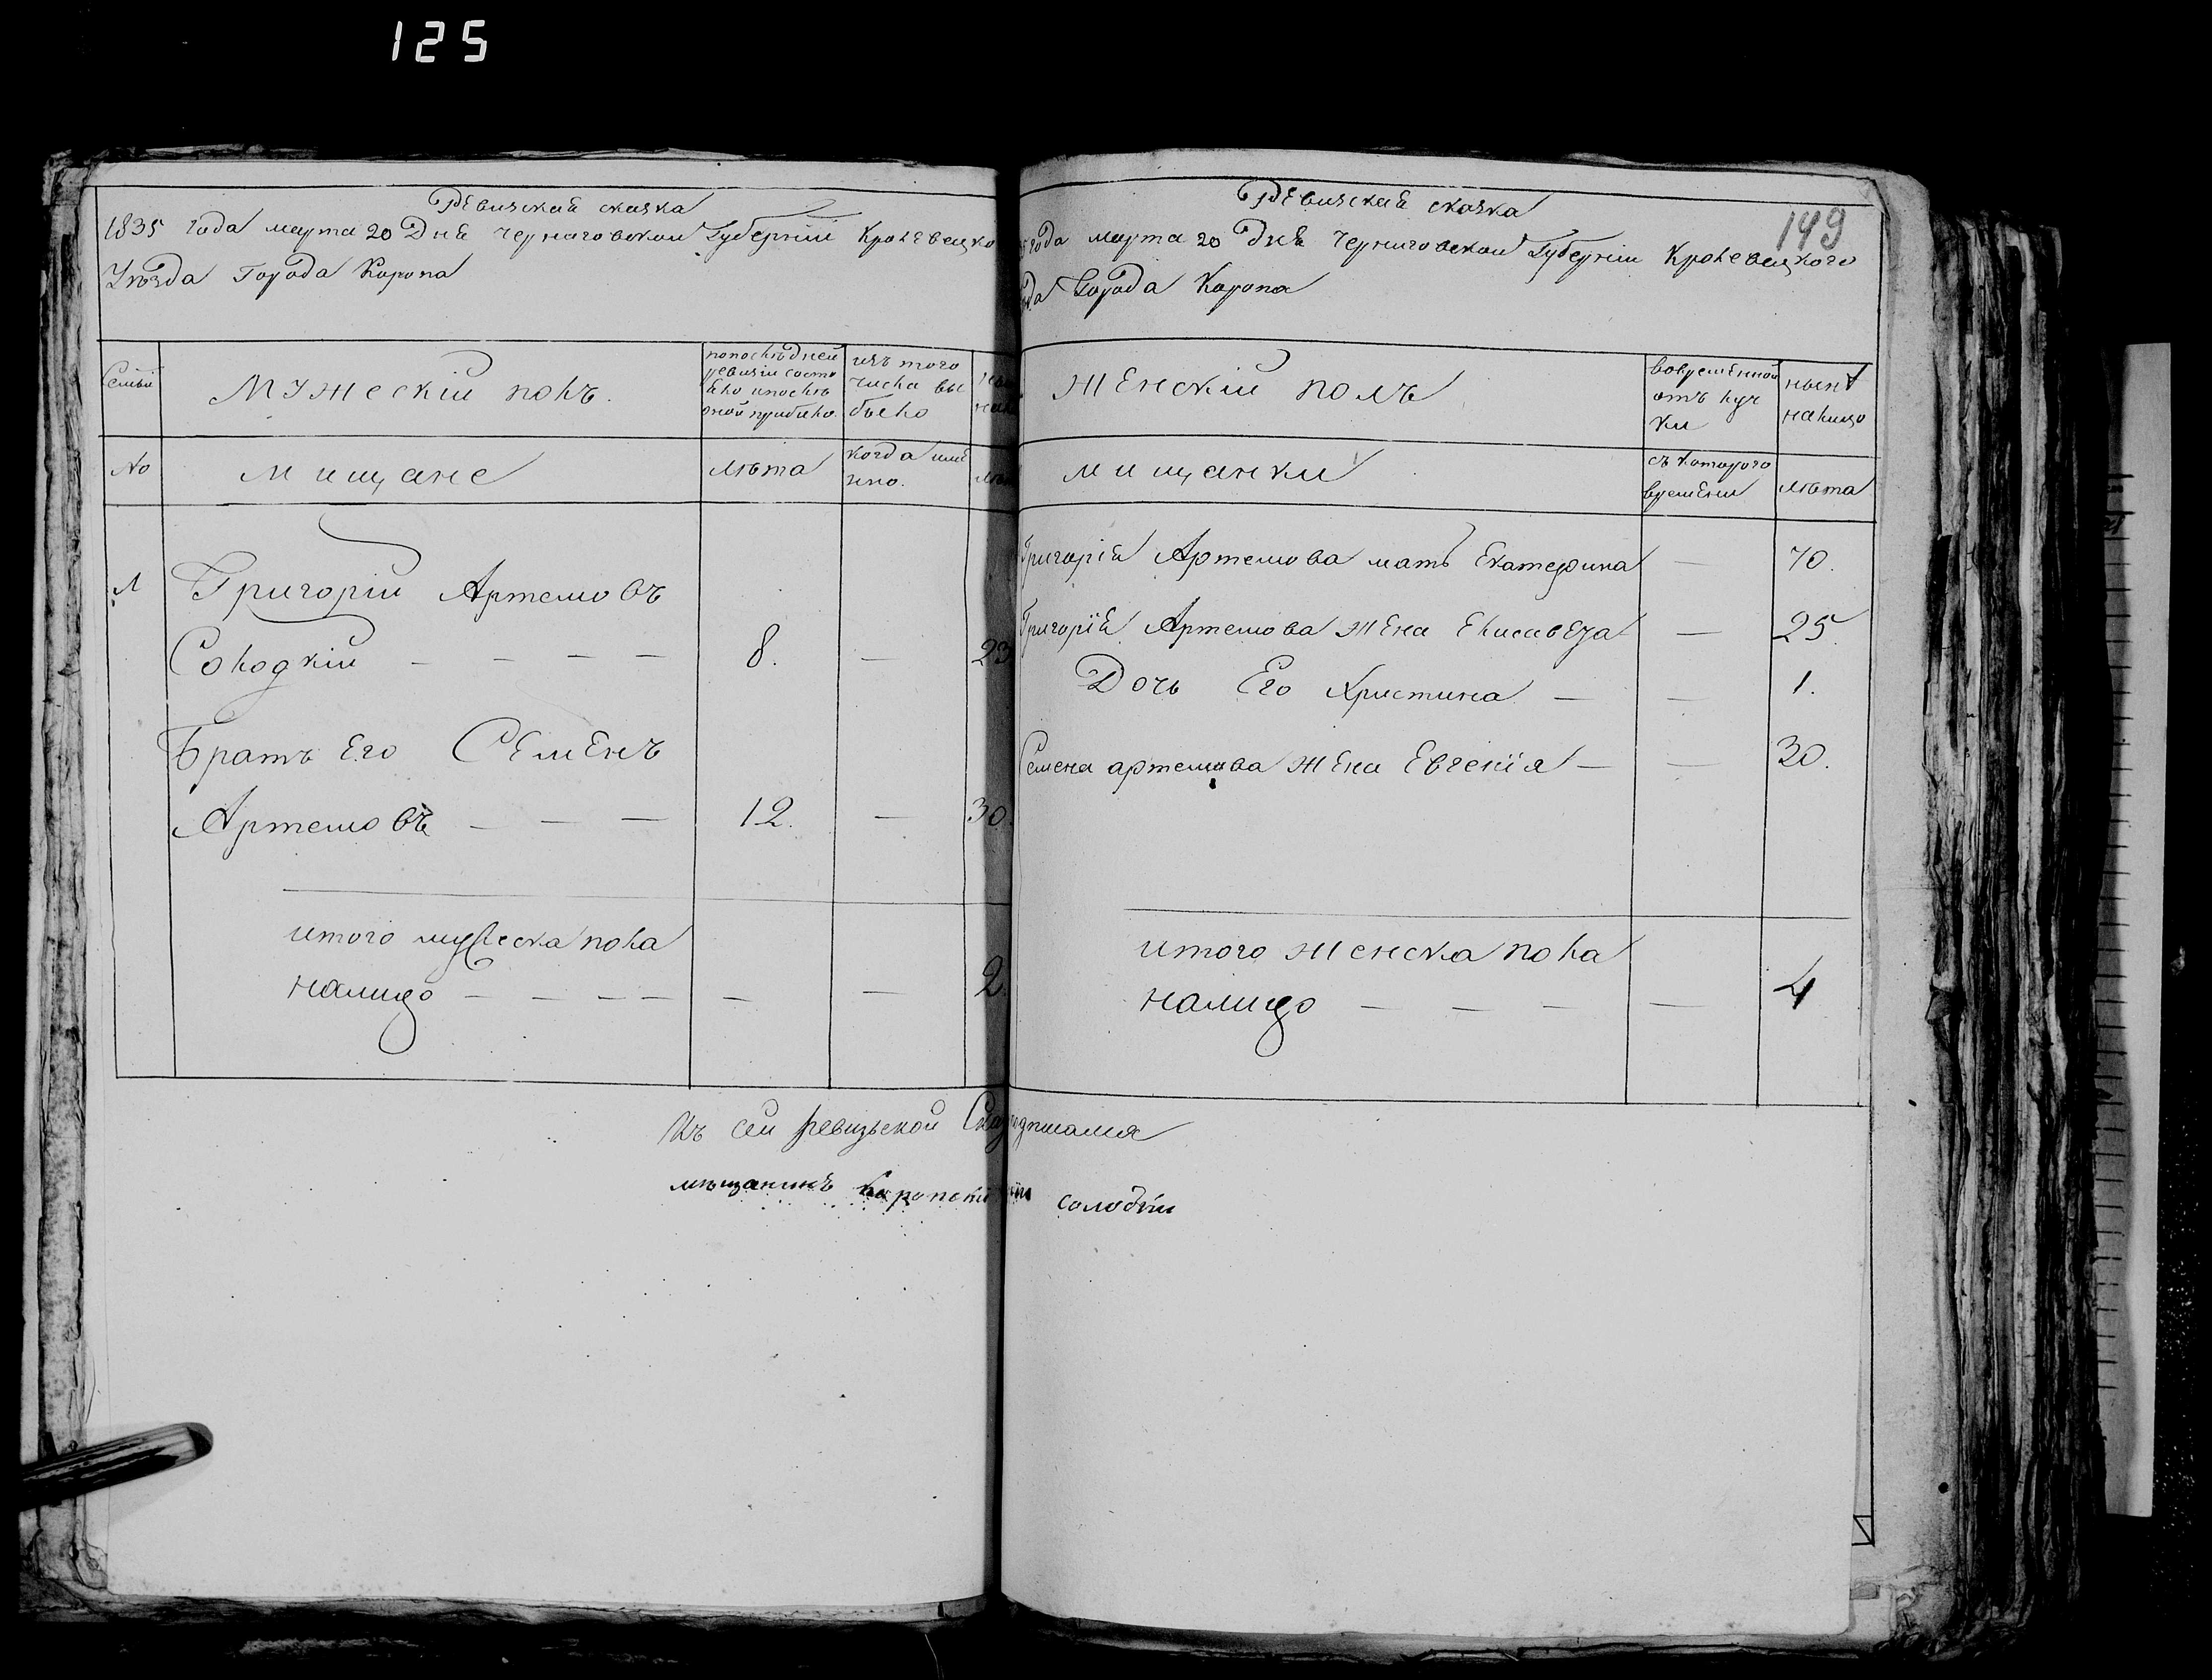 125
Ревизская сказка
1835 года марта 20 Дня Черниговской Губернiи Кролевецко
Уѣзда Города Коропа
Семьи
Мужескiй полъ.
попослѣдней
ревизiи состо
яло ипослѣ
оной прибыло.
изъ того
числа вы
было
№
мищане
лѣта
когда име
нно.
1
Григорiй Артемовъ
Солодкiй — — — — 8. — 23
Братъ Его Семенъ
Артемовъ — — — 12. — 30.
итого мужеска пола
налицо — — — — — — 2.
149
Ревизская сказка
года марта 20 Дня Черниговской Губернiи Кролевецкого
Города Коропа
Женскiй полъ
вовременной
отъ луч
ки
нынѣ
налицо
мищанки
съ которого
времени
лѣта
Григорiя Артемова мать Екатерина — 70.
Григорiя Артемова жена Елисавета — 25.
Дочь Его Христина — — 1.
Семена артемова жена Евгенiя — — 30.
итого женска пола
налицо — — — — 4
Къ сей ревизьской
мѣщанинъ